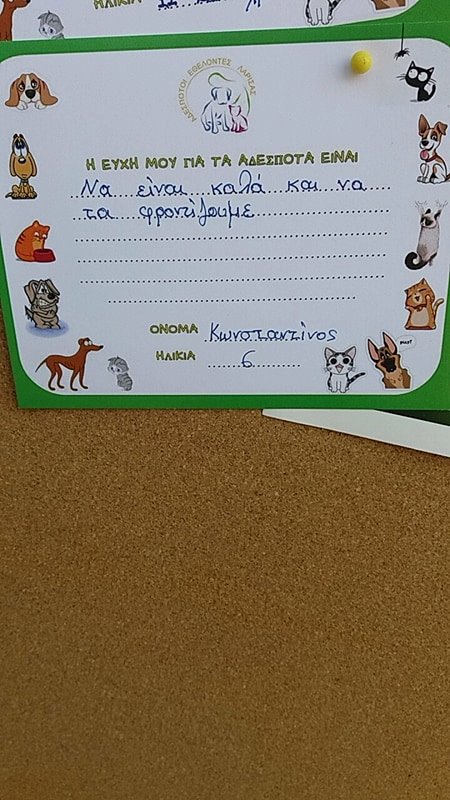 ΗΛΙΚΙΑ
ΑΔΕΣΠΟΤΟΙ ΕΘΕΛΟΝΤΕΣ ΛΑΡΙΣΑΣ
Η ΕΥΧΗ ΜΟΥ ΓΙΑ ΤΑ ΑΔΕΣΠΟΤΑ ΕΙΝΑΙ
Να είναι καλά και να
τα φροντίζουμε
ΟΝΟΜΑ Κωνσταντίνος
ΗΛΙΚΙΑ 6